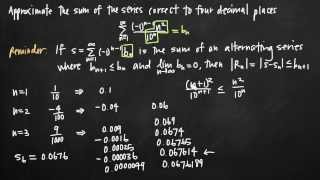 Approximate the sum of the series correct to four decimal places
∞ Σ n=1 (-1)^(n-1) n² / 10ⁿ = bₙ
Reminder: If s = Σ (-1)^(n-1) bₙ is the sum of an alternating series
where bₙ₊₁ ≤ bₙ and lim n→∞ bₙ = 0, then |Rₙ| = |s-sₙ| ≤ bₙ₊₁
n=1 1/10 ⇒ 0.1
(n+1)²/10ⁿ⁺¹ ≤ n²/10ⁿ
n=2 -4/100 ⇒ -0.04 0.06
n=3 9/1000 ⇒ 0.009 0.069
-0.0016 0.0674
0.00025 0.06765
s₆ = 0.0676 -0.000036 0.067614 ←
0.0000049 0.0676189